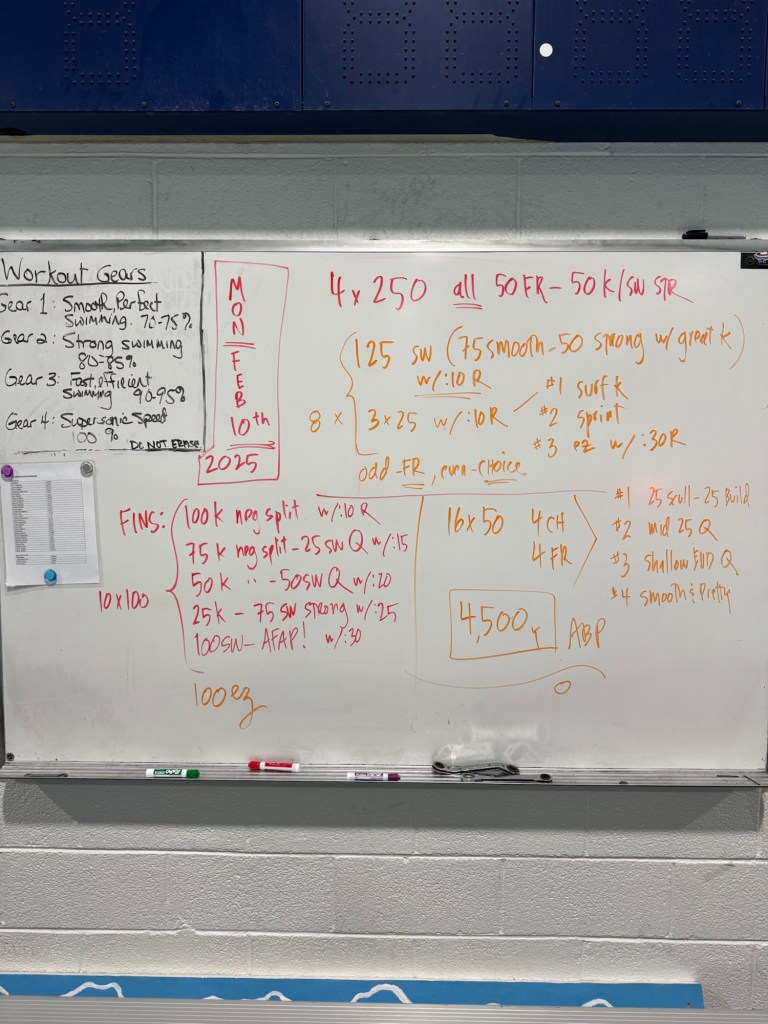 Workout Gears
Gear 1: Smooth, Perfect
Swimming. 70-75%
Gear 2: Strong swimming
80-85%
Gear 3: Fast, efficient
Swimming 90-95%
Gear 4: Supersonic Speed
100 %
DO NOT ERASE
MON
FEB
10th
2025
4 x 250 all 50 FR - 50 k/sw STR
8 x
125 sw (75 smooth - 50 strong w/ great k)
w/:10 R
3 x 25 w/:10R
#1 surf k
#2 sprint
#3 ez w/:30R
odd - FR, even - CHOICE
FINS:
10 x 100
100 k neg split w/:10 R
75 k neg split - 25 sw Q w/:15
50 k " - 50 sw Q w/:20
25k - 75 sw strong w/:25
100 sw - AFAP! w/:30
100 ez
16 x 50 4 CH
4 FR
#1 25 scull - 25 Build
#2 mid 25 Q
#3 shallow END Q
#4 smooth & Pretty
4,500 Y ABP